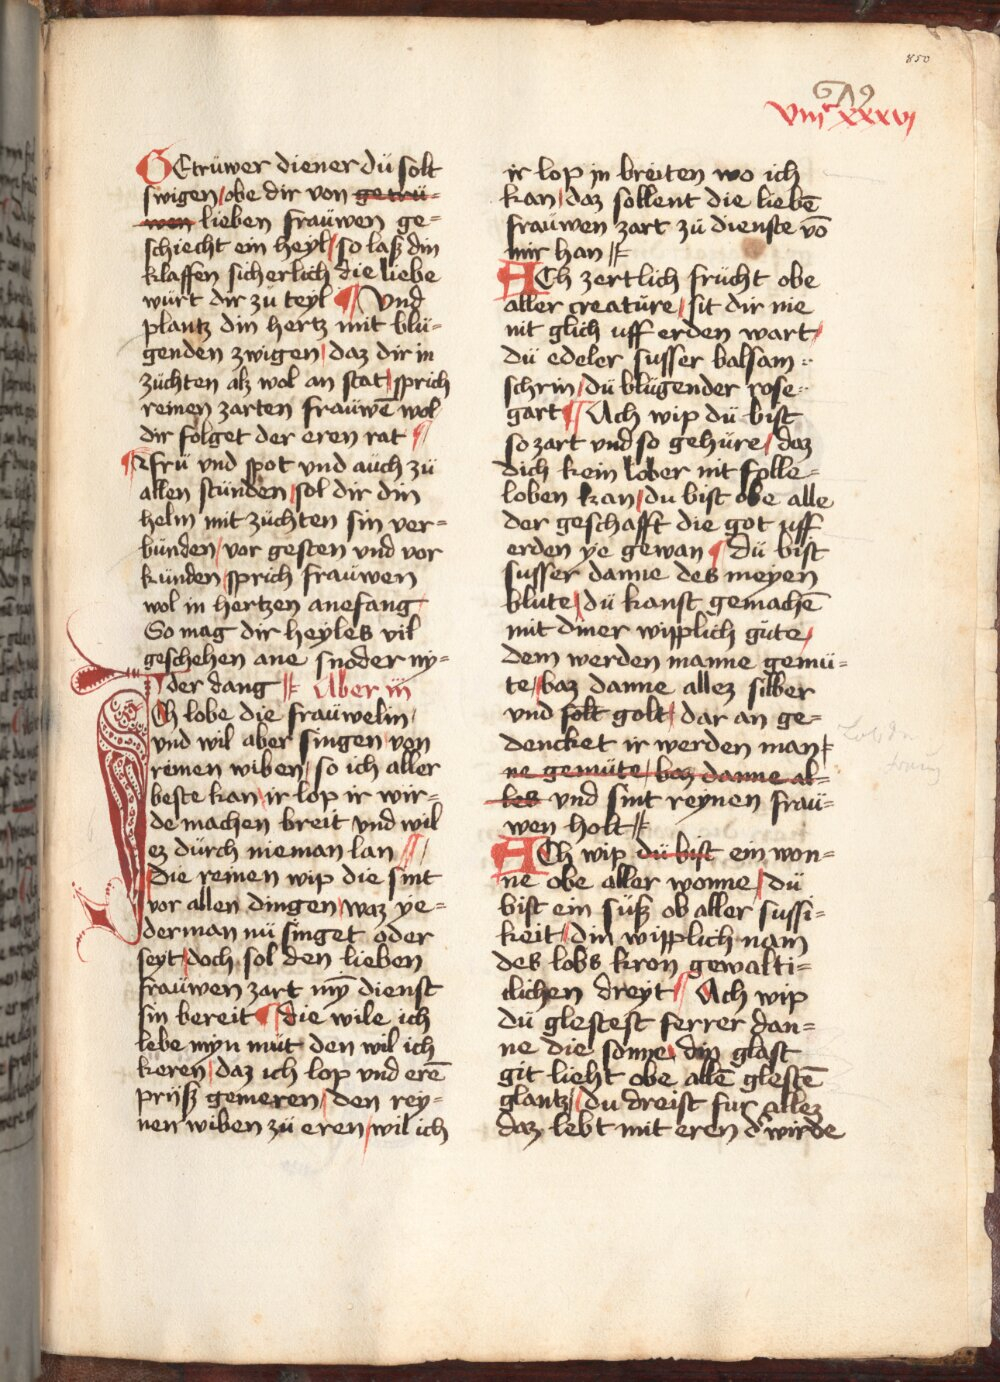 850
679
viijc xxxvj
GEtrüwer diener dü solt
swigen / obe dir von getrü-
wen lieben fraüwen ge=
schiecht ein heyl / so laß din
klaffen sicherlich die liebe
würt dir zü teyl ¶ Vnd
plantz din hertz mit blü-
genden zwigen / daz dir in
züchten alz wol an stat / sprich
reinen zarten fraüwē wol
dir folget der eren rat ¶
frü vnd spot vnd aüch zü
allen stünden / sol dir din
helm mit züchten sin ver=
bünden / vor gesten vnd vor
künden / sprich fraüwen
wol in hertzen anefang
So mag dir heyles vil
geschehen ane snoder ny=
der dang Aber iij
Ich lobe die fraüwelin
vnd wil aber singen von
reinen wiben / so ich aller
beste kan / ir lop ir wir=
de machen breit vnd wil
ez dürch nieman lan
die reinen wip die sint
vor allen dingen / waz ye=
derman nü singet oder
seyt / doch sol den lieben
fraüwen zart mȳ dienst
sin bereit ¶ die wile ich
lebe myn müt den wil ich
keren / daz ich lop vnd erē
prijß gemeren / den rey=
nen wiben zü eren / wil ich
ir lop in breiten wo ich
kan / daz sollent die liebē
fraüwen zart zü dienste vō
mir han
ACh zertlich frücht obe
aller creatüre / sit dir nie
nit glich uff erden wart /
dü edeler süsser balsam =
schrin / dü blügender rose=
gart ¶ Ach wip dü bist
so zart vnd so gehüre / daz
dich kein lober nit folle=
loben kan / du bist obe alle
der geschafft die got uff
erden ye gewan ¶ Dü bist
süsser danne des meyen
blüte / dü kanst gemachē
mit diner wipplich güte /
dem werden manne gemü=
te / baz danne allez silber
vnd solt golt / dar an ge=
dencket ir werden man
ne gemüte / baz danne al=
les vnd sint reynen fraü=
wen holt
ACh wip dü bist ein won=
ne obe aller wonne / dü
bist ein süß ob aller süssi=
keit / din wipplich nam
des lobs kron gewalti=
clichen dreyt ¶ Ach wip
dü glestest ferrer dan=
ne die sonne / din glast
git lieht obe allē glestē
glantz / du dreist fur allez
daz lebt mit eren dʾ wirde